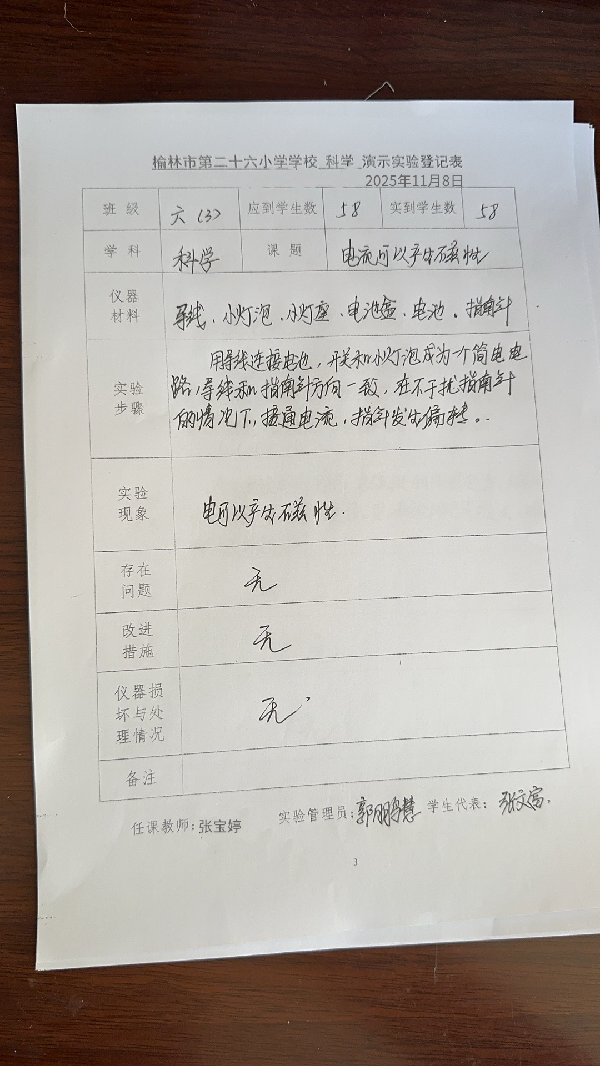 榆林市第二十六小学学校 科学 演示实验登记表
2025年11月8日
班 级 六（3） 应到学生数 58 实到学生数 58
学 科 科学 课 题 电流可以产生磁性
仪器
材料
导线、小灯泡、小灯座、电池盒、电池。指南针
实验
步骤
用导线连接电池，开关和小灯泡成为一个简电电
路，导线和指南针方向一致，在不干扰指南针
的情况下，接通电流，指针发生偏转。
实验
现象
电可以产生磁性.
存在
问题
无
改进
措施
无
仪器损
坏与处
理情况
无
备注
任课教师：张宝婷 实验管理员： 学生代表：张文富.
3